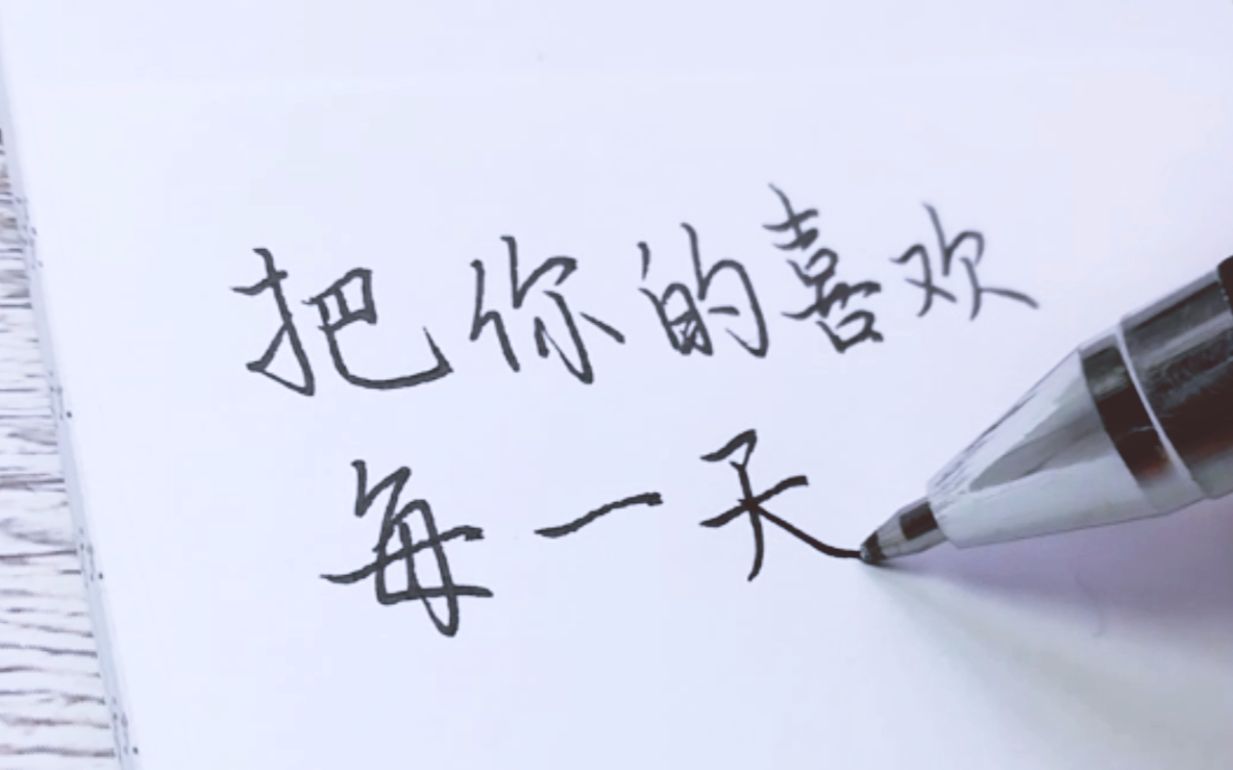 把你的喜欢
每一天